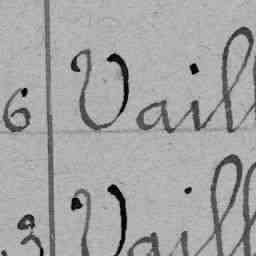 6 Vaill
3 Vaill